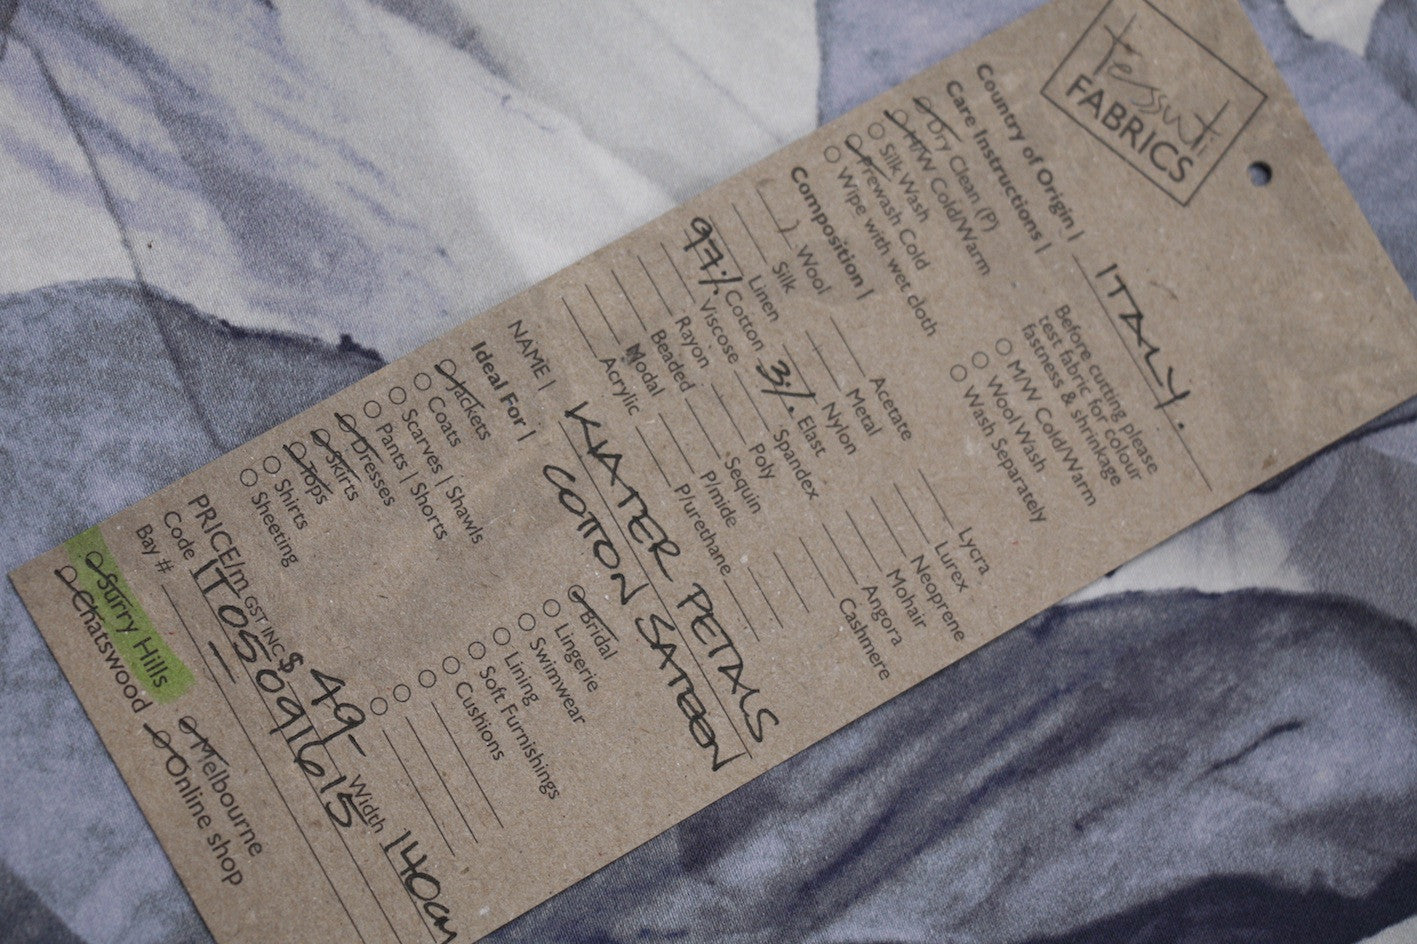 tessuti
FABRICS
Country of Origin | ITALY.
Care Instructions |
Dry Clean (P)
H/W Cold/Warm
Silk Wash
Prewash Cold
Wipe with wet cloth
Before cutting please
test fabric for colour
fastness & shrinkage
M/W Cold/Warm
Wool Wash
Wash Separately
Composition |
Wool Acetate Lycra
Silk Metal Lurex
Linen Nylon Neoprene
97% Cotton 3% Elast Mohair
Viscose Spandex Angora
Rayon Poly Cashmere
Beaded Sequin
Modal P/mide
Acrylic P/urethane
NAME | WATER PETALS
COTTON SATEEN
Ideal For |
Jackets Bridal
Coats Lingerie
Scarves | Shawls Swimwear
Pants | Shorts Lining
Dresses Soft Furnishings
Skirts Cushions
Tops
Shirts
Sheeting
PRICE/m GST INC $49- Width 140cm
Code IT05091615
Bay #
Surry Hills Melbourne
Chatswood Online shop